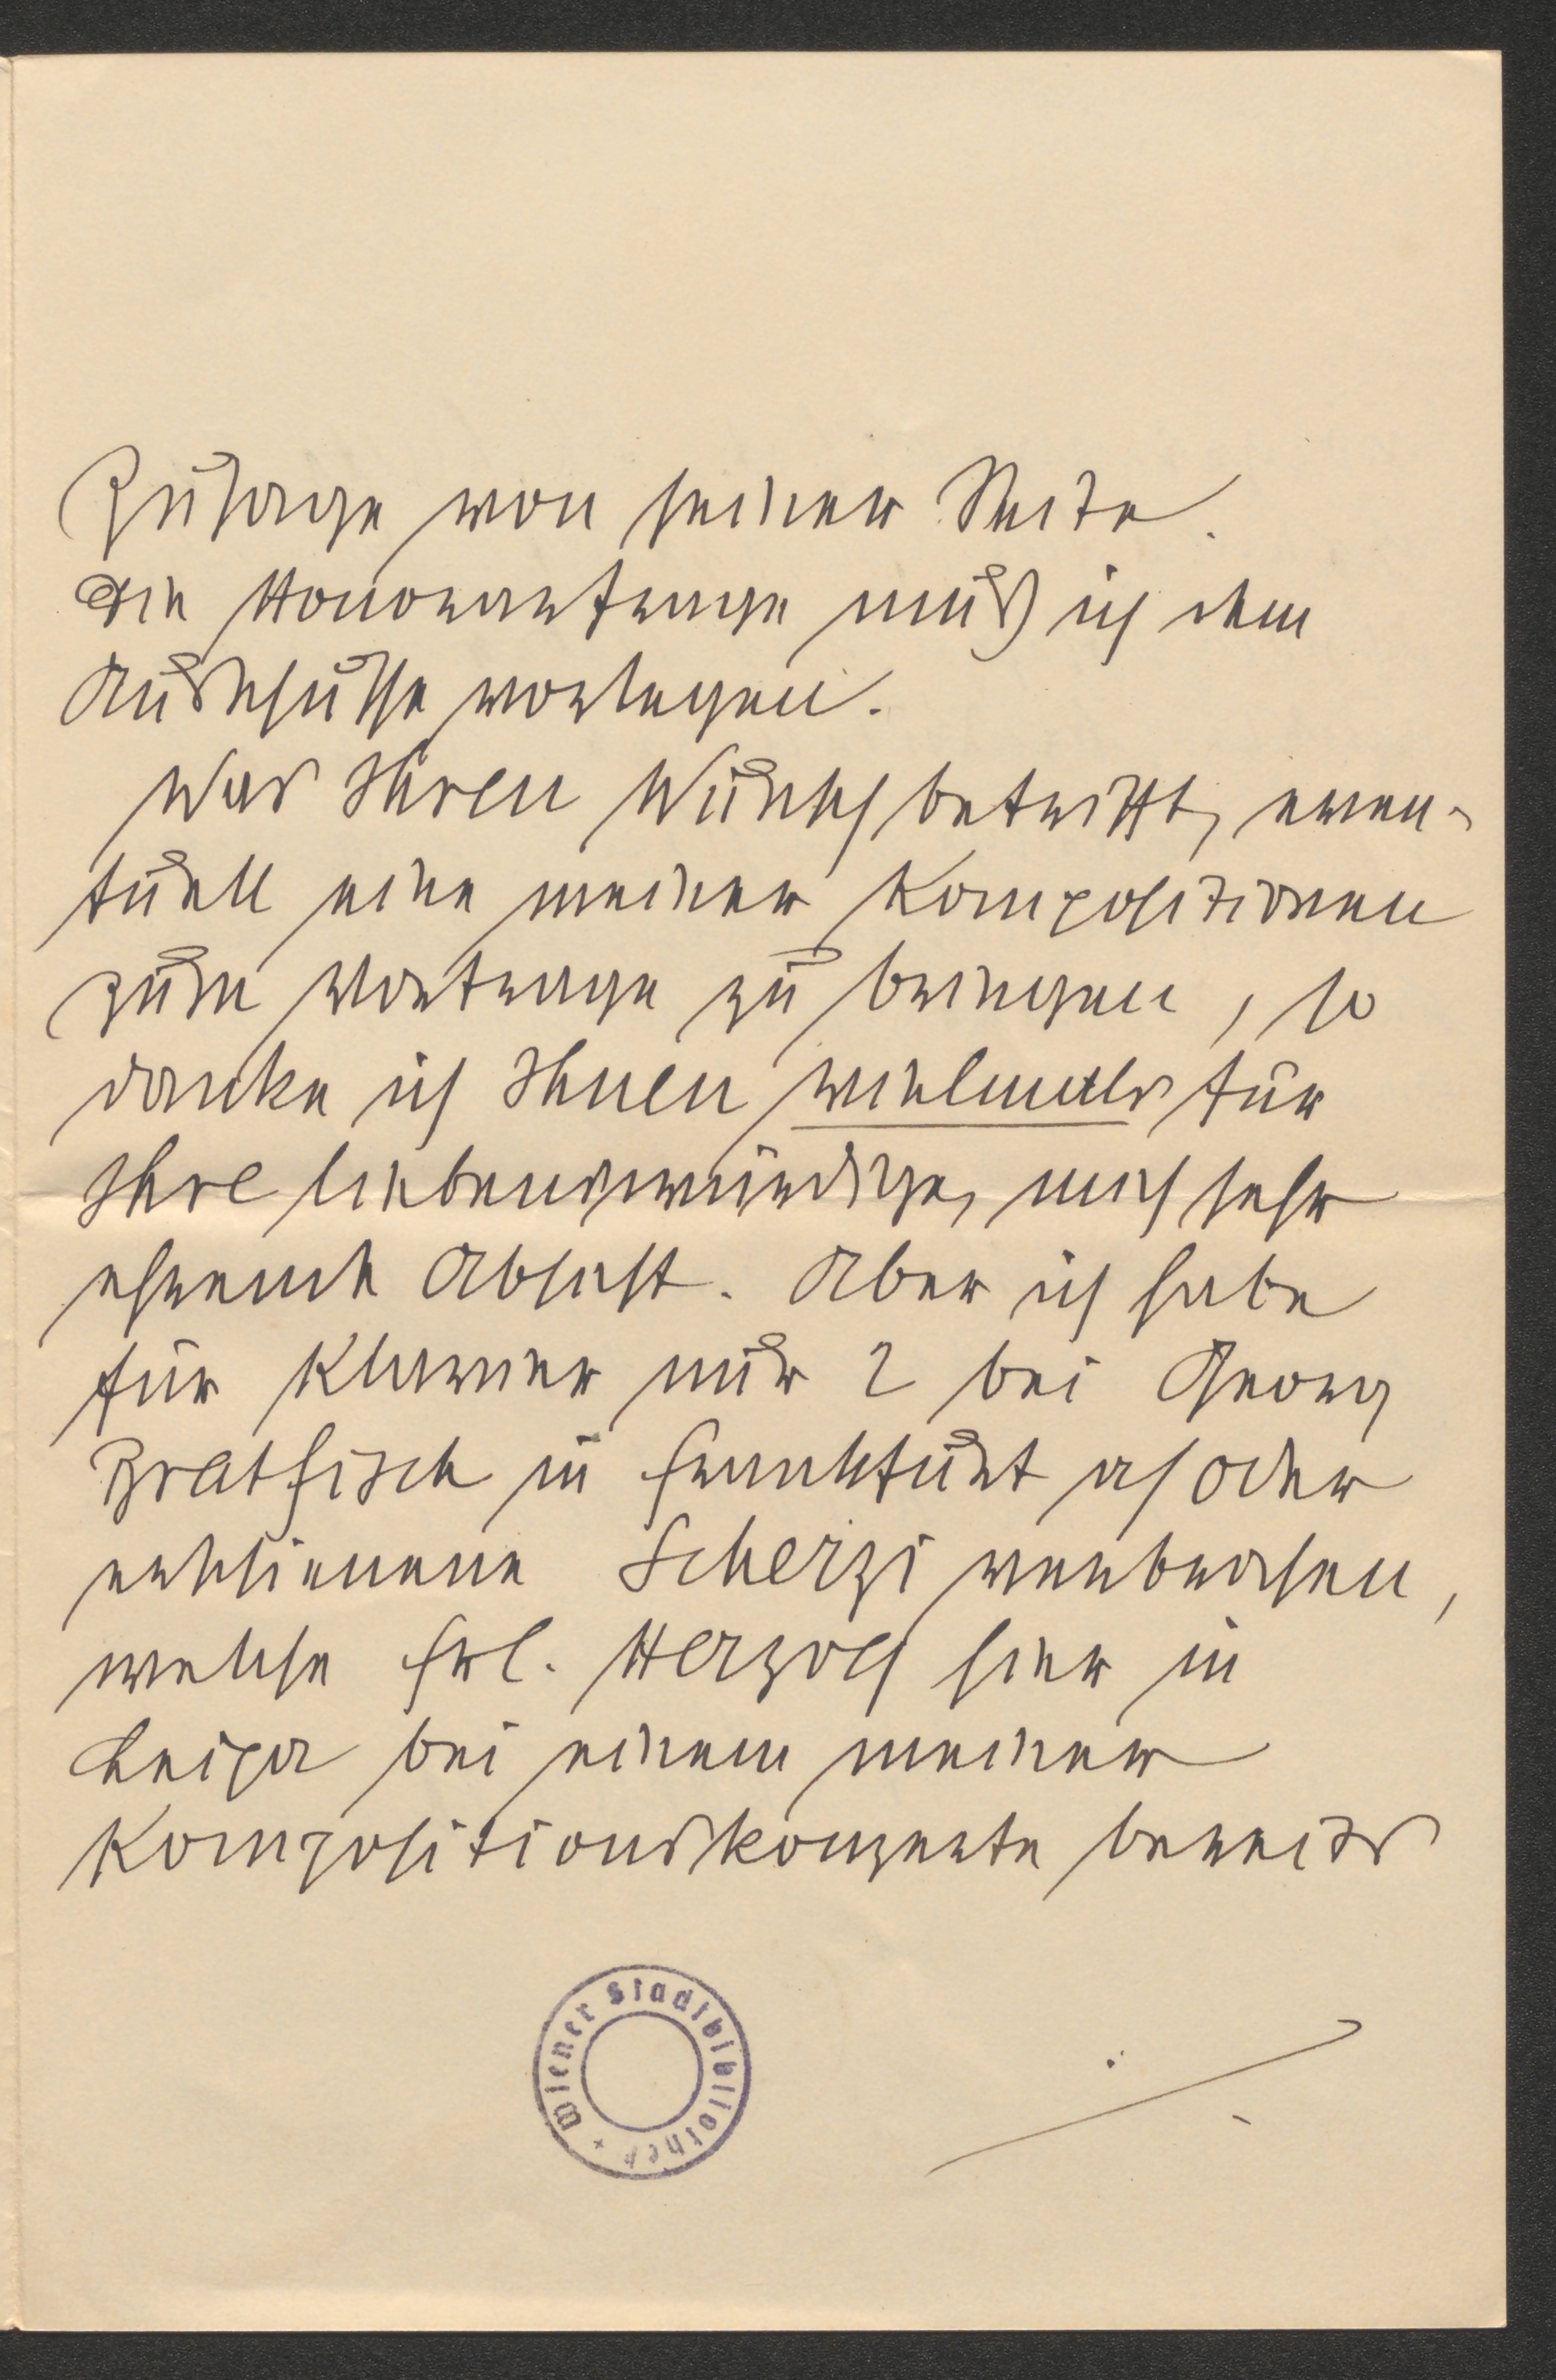 Zusage von seiner Seite.
Die Honorarfrage muß ich dem
Ausschusse vorlegen.
Was Ihren Wunsch betrifft, even-
tuell eine meiner Kompositionen
zum Vortrage zu bringen, so
danke ich Ihnen vielmals für
Ihre liebenswürdige, mich sehr
ehrende Absicht. Aber ich habe
für Klavier nur 2 bei Georg
Bratfisch in Frankfurt a/Oder
erschienene Scherzi verbrochen,
welche Frl. Herzog hier in
Leipa bei einem meiner
Kompositionskonzerte bereits
Wiener Stadtbibliothek